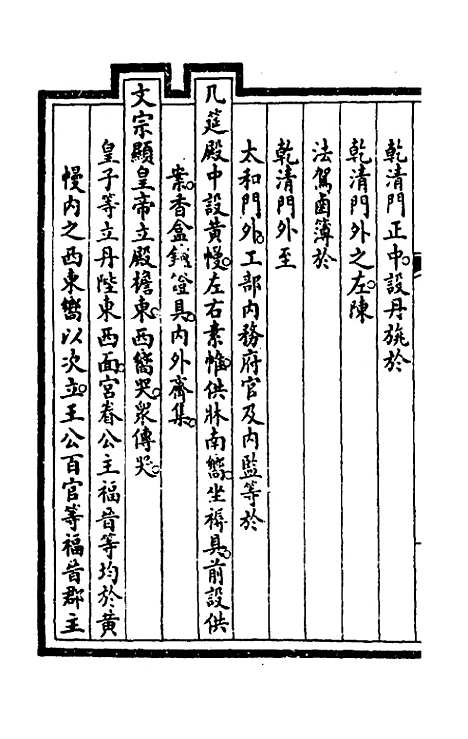 乾清門正中設丹旐於
乾清門外之左陳
法駕鹵簿於
乾清門外至
太和門外工部內務府官及內監等於
几筵殿中設黃幔左右素帷供牀南嚮坐褥具前設供
案香盒鐙具內外齊集
文宗顯皇帝立殿檐東西嚮哭眾傳哭
皇子等立丹陛東西面宮眷公主福晉等均於黃
幔內之西東嚮以次立王公百官等福晉郡主